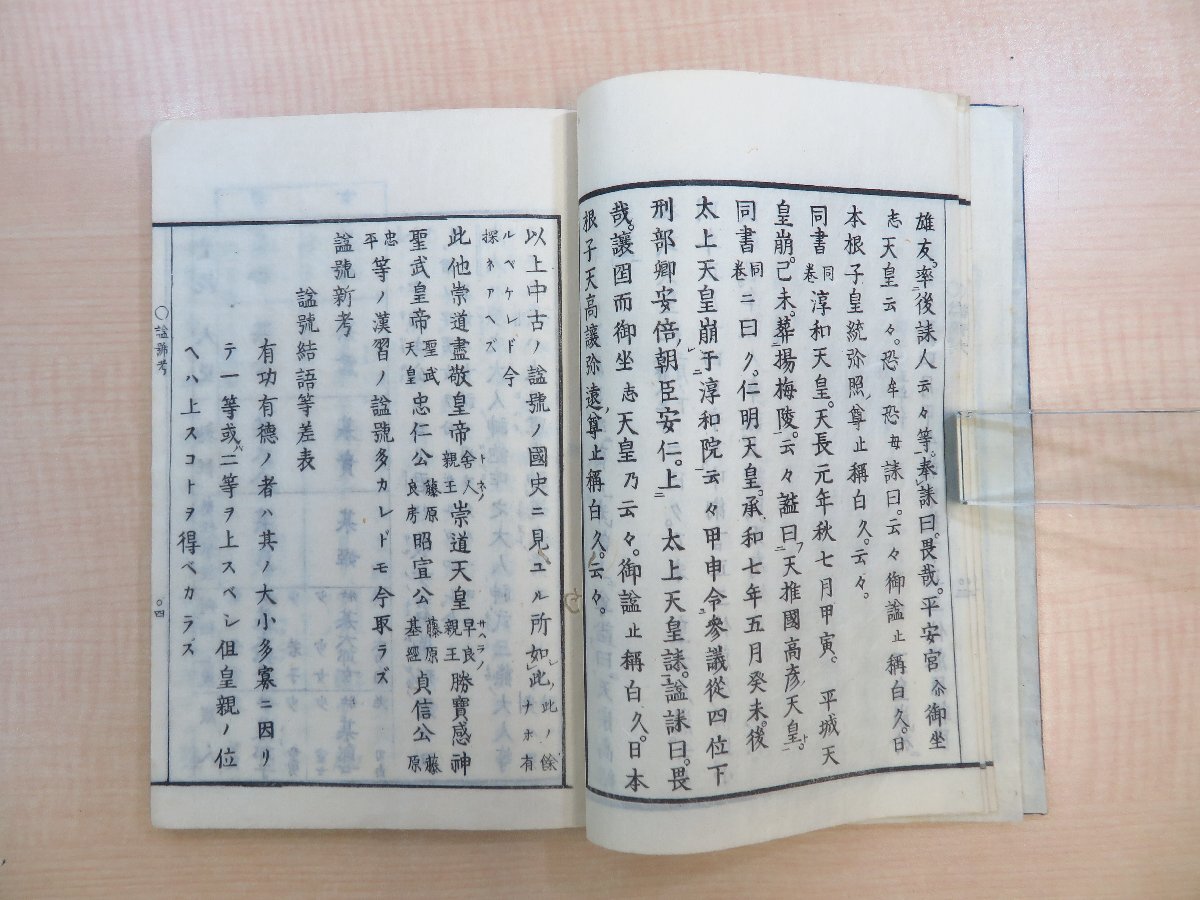 雄友。率後誄人云々等奉誄曰。畏哉。平安宮尓御坐
志天皇云々。恐牟恐母誄曰。云々御謚止稱白久。日
本根子皇統弥照尊止稱白久。云々。
同書同卷淳和天皇。天長元年秋七月甲寅。平城天
皇崩。己未。葬揚梅陵。云々謚曰天推國高彦天皇。
同書同卷ニ曰ク。仁明天皇。承和七年五月癸未。後
太上天皇崩于淳和院云々甲申令參議從四位下
刑部卿安倍朝臣安仁。上ク。太上天皇誄。謚誄曰。畏
哉。讓国而御坐志天皇乃云々。御謚止稱白久。日本
根子天高讓弥遠尊止稱白久。云々。
以上中古ノ謚號ノ國史ニ見ユル所如此、此ノ餘ナホ有
ルベケレド今探ネアヘズ
此他崇道盡敬皇帝舎人親王トネノ崇道天皇早良親王サハラノ勝寶感神
聖武皇帝聖武天皇忠仁公藤原良房昭宣公藤原基經貞信公藤原
忠平等ノ漢習ノ謚號多カレドモ今取ラズ
謚號新考
謚號結語等差表
有功有德ノ者ハ其ノ大小多寡ニ因リ
テ一等或ハ二等ヲ上スベシ但皇親ノ位
ヘハ上スコトヲ得ベカラズ
〇謚號考
〇四